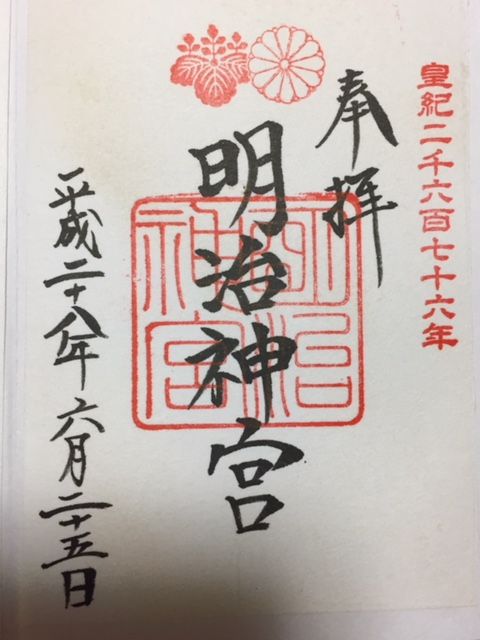 皇紀二千六百七十六年
奉拝
明治神宮
明治
神宮
平成二十八年六月二十五日